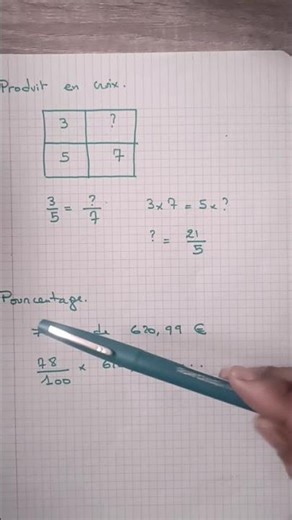 Produit en croix.
3 ?
5 7
3/5 = ?/7 3x7 = 5x?
? = 21/5
Pourcentage.
de 620,99 €
78/100 x